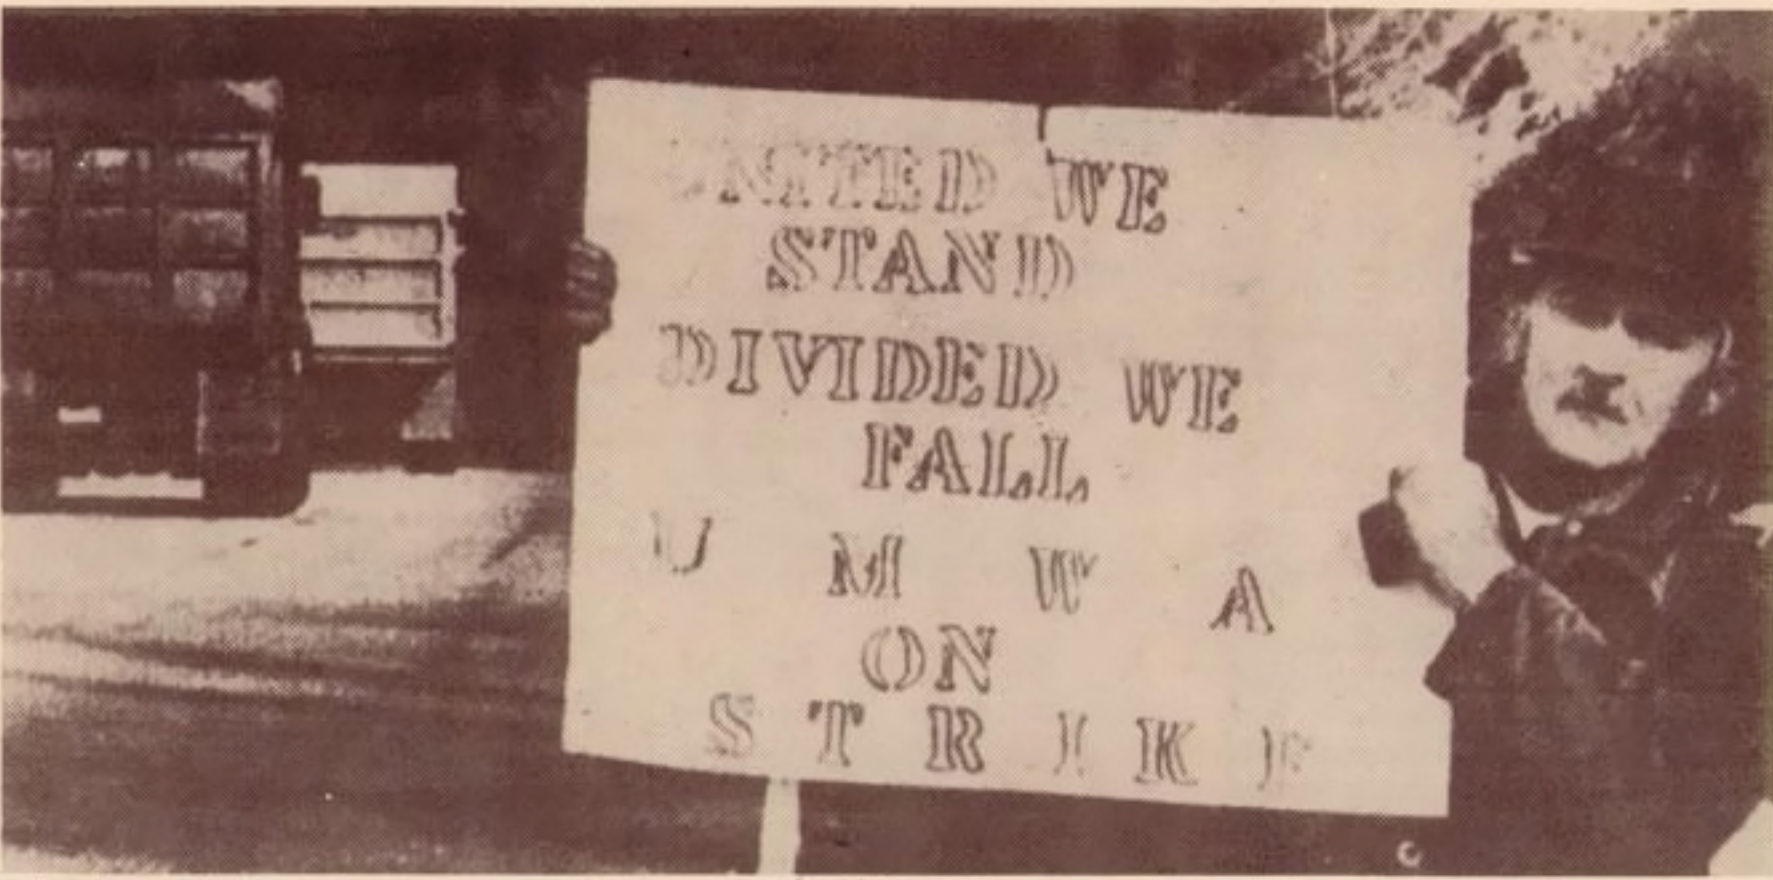 UNITED WE
STAND
DIVIDED WE
FALL
U M W A
ON
STRIKE